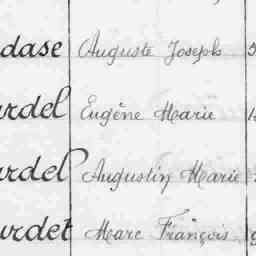 dase Auguste Joseph
rdel Eugène Marie
rdel Augustin Marie
urdet Marc François